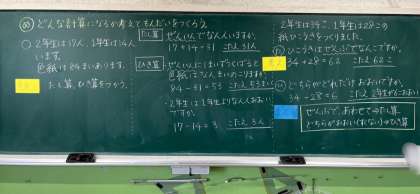 問 どんな計算になるか考えてもんだいをつくろう。
○2年生は17人、1年生は14人います。
色紙は84まいあります。
たし算、ひき算をつかう。
たし算 ぜんいんでなん人いますか。
17+14=31 こたえ 31人
ひき算 ぜんいんに1まいずつくばると
色紙はなんまいのこりますか。
84-31=53 こたえ 53まい
・2年生は1年生よりなん人おおい
ですか。
17-14=3 こたえ 3人
2年生は34こ、1年生は28この
紙ひこうきをつくりました。
ひこうきはぜんぶでなんこですか。
34+28=62 こたえ 62こ
どちらがどれだけおおいですか。
34-28=6 こたえ 2年生が6こおおい
ぜんぶで、あわせて→たし算
どちらがおおい(すくない)→ひき算